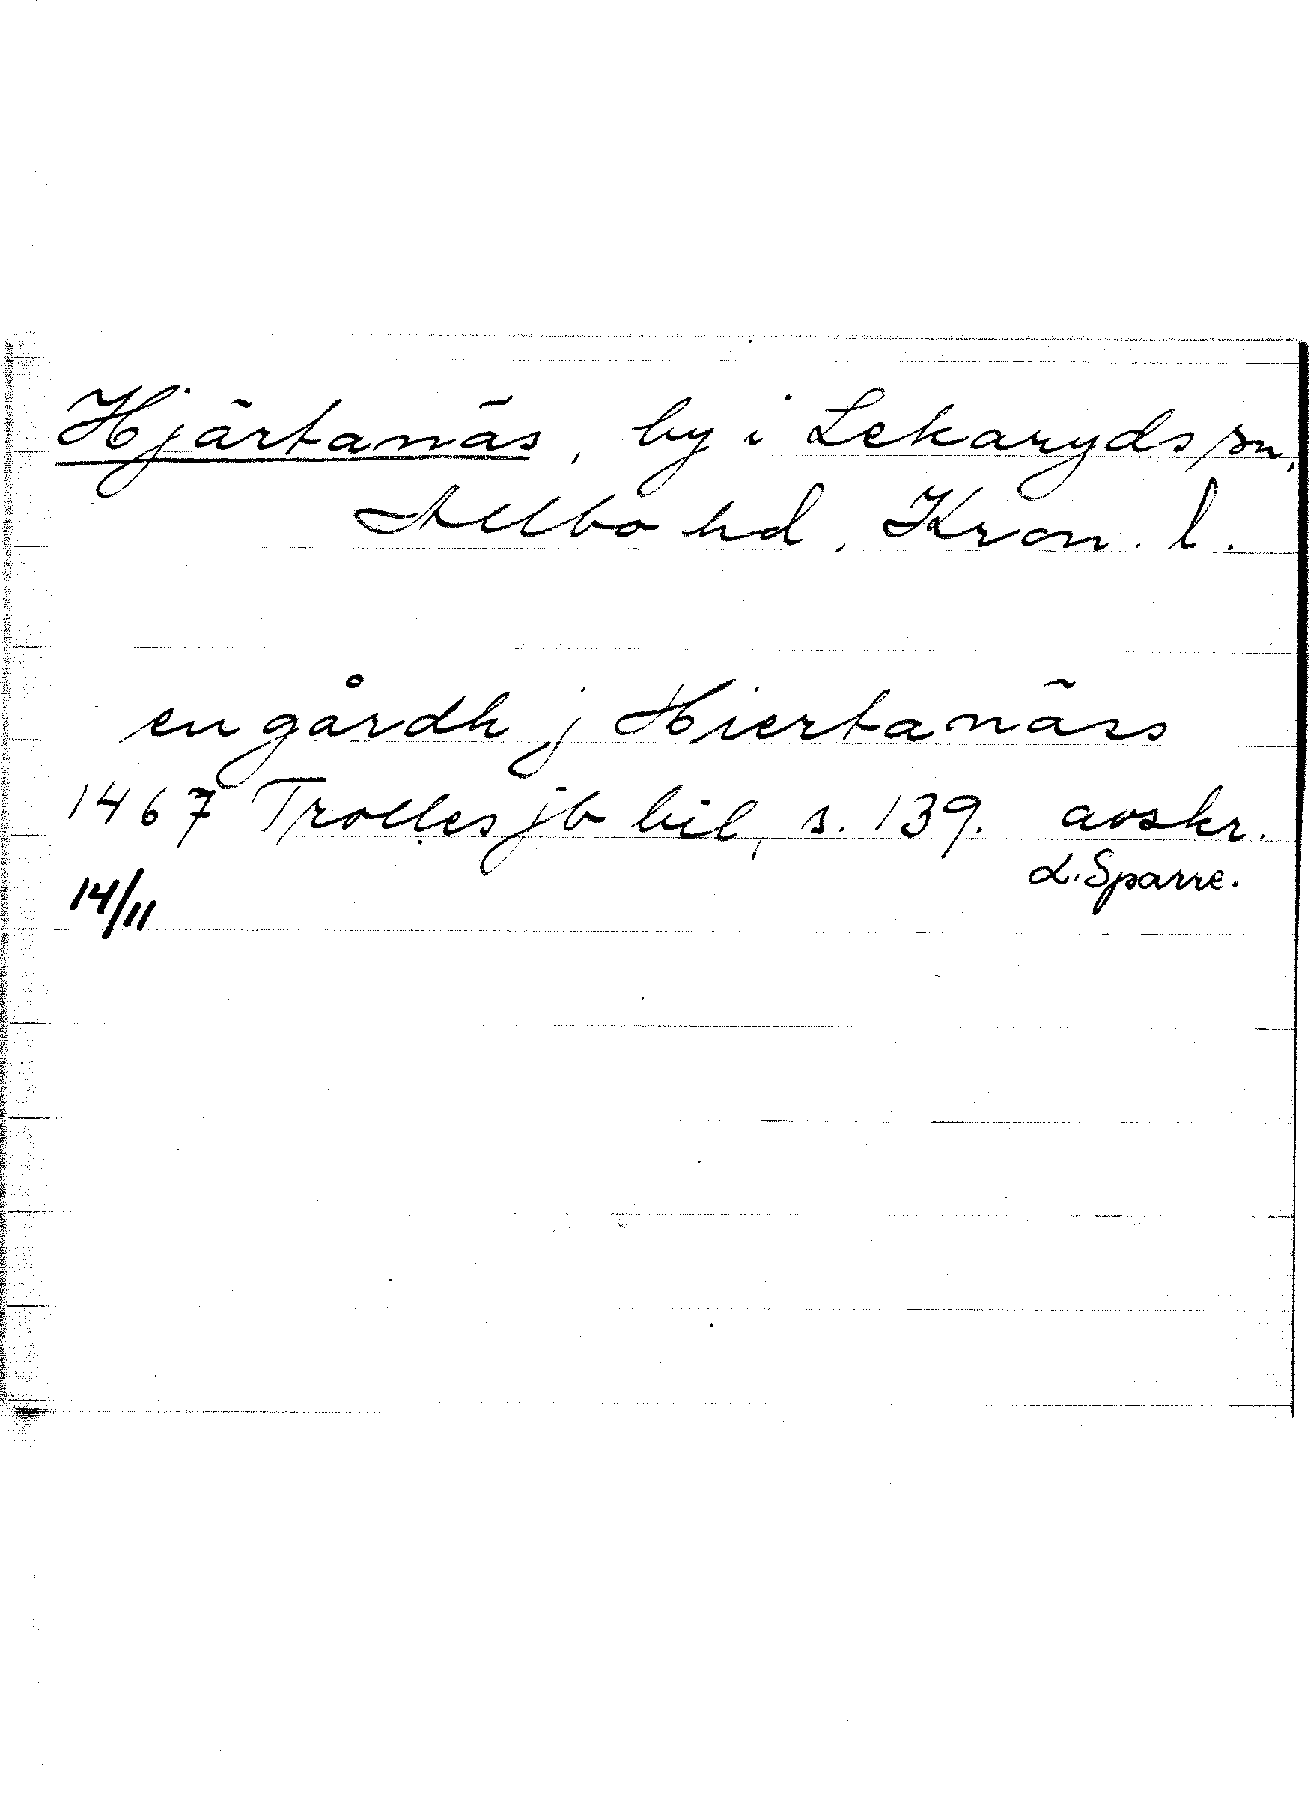 Hjärtanäs, by i Lekaryds sn,
Allbo hd, Kron. l.
en gårdh j Hiertanäss
1467 Trolles jb bil, s. 139. avskr.
L. Sparre.
14/11